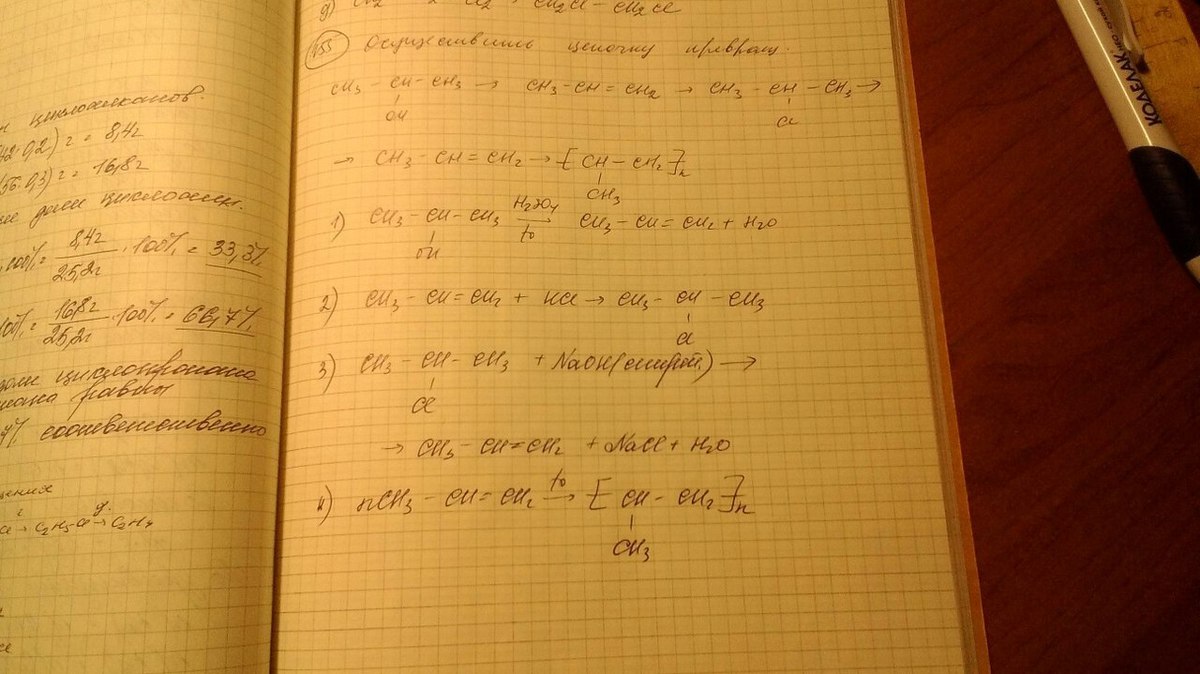 н циклоалканов.
42·0,2) г = 8,4г
(56·0,3)г = 16,8г
доли циклоалк.
100% = 8,4г / 25,2г · 100% = 33,3%
100% = 16,8г / 25,2г · 100% = 66,7%
доли циклопропана
равны
7% соответственно
→ C2H5Cl → C2H4
CH2Cl–CH2Cl
№55 Осуществить цепочку превращ.
CH3 – CH – CH3 → CH3–CH=CH2 → CH3 – CH – CH3 →
OH Cl
→ CH3 – CH = CH2 → [CH – CH2]n
CH3
1) CH3 – CH – CH3 H2SO4 → t° CH3 – CH = CH2 + H2O
OH
2) CH3 – CH = CH2 + HCl → CH3 – CH – CH3
Cl
3) CH3 – CH – CH3 + NaOH(спирт.) →
Cl
→ CH3 – CH=CH2 + NaCl + H2O
4) nCH3 – CH = CH2 t° → [CH – CH2]n
CH3
КОДЕЛАК